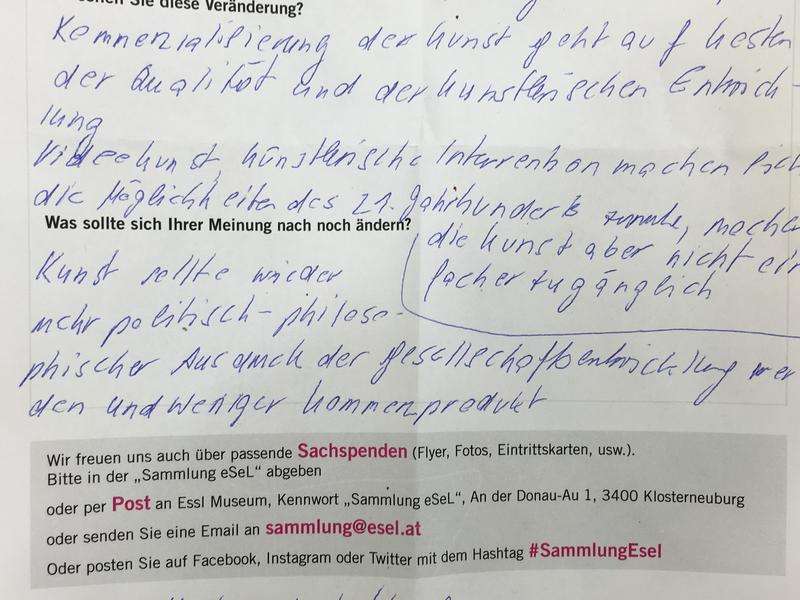 Sie diese Veränderung?
Kommerzialisierung der Kunst geht auf Kosten
der Qualität und der künstlerischen Entwick-
lung
Videokunst, künstlerische Intervention machen sich
die Möglichkeiten des 21. Jahrhunderts zunutze, machen
die Kunst aber nicht ein
facher zugänglich
Was sollte sich Ihrer Meinung nach noch ändern?
Kunst sollte wieder
mehr politisch-philoso-
phischer Ausdruck der Gesellschaftsentwicklung wer
den und weniger Kommerzprodukt
Wir freuen uns auch über passende Sachspenden (Flyer, Fotos, Eintrittskarten, usw.).
Bitte in der „Sammlung eSeL“ abgeben
oder per Post an Essl Museum, Kennwort „Sammlung eSeL“, An der Donau-Au 1, 3400 Klosterneuburg
oder senden Sie eine Email an sammlung@esel.at
Oder posten Sie auf Facebook, Instagram oder Twitter mit dem Hashtag #SammlungEsel